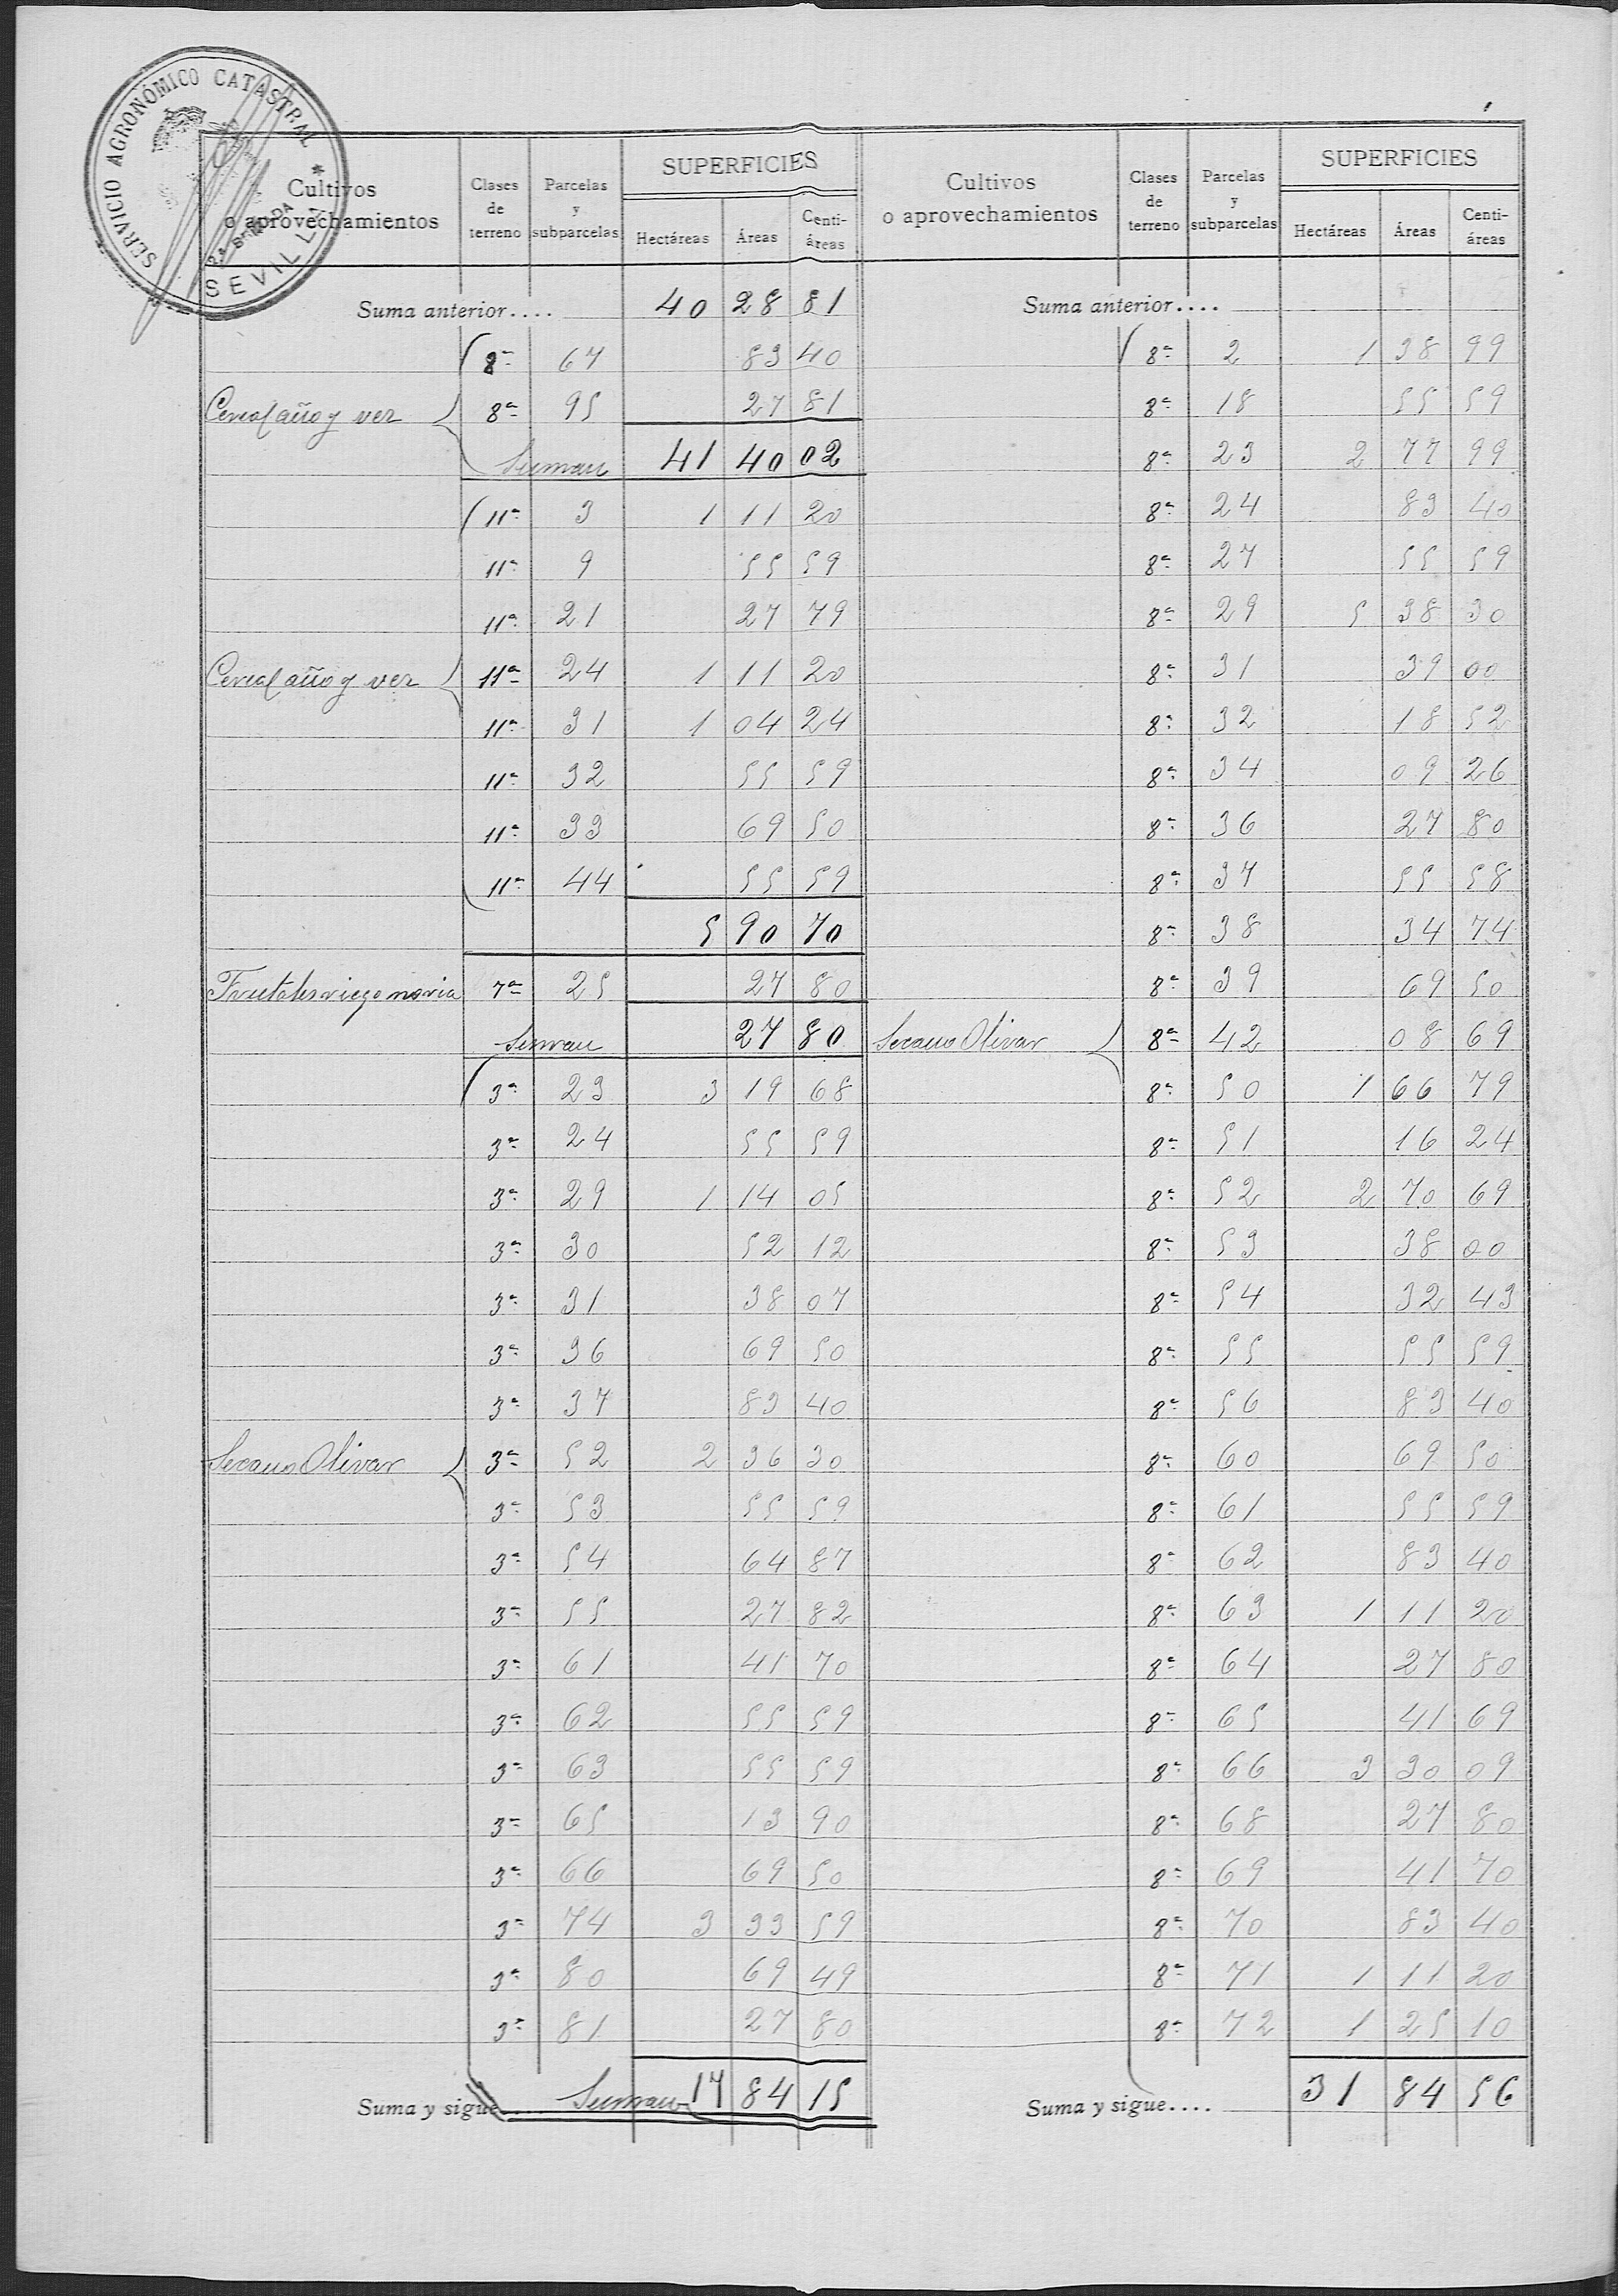 SERVICIO AGRONÓMICO CATASTRAL *
SEVILLA
Cultivos o aprovechamientos | Clases de terreno | Parcelas y subparcelas | SUPERFICIES Hectáreas | Áreas | Centi-áreas
Suma anterior.... 40 28 81
8ª 67 83 40
Cereal año y vez 8ª 95 27 81
Suman 41 40 02
11ª 3 1 11 20
11ª 9 55 59
11ª 21 27 79
Cereal año y vez 11ª 24 1 11 20
11ª 31 1 04 24
11ª 32 55 59
11ª 33 69 50
11ª 44 55 59
5 90 70
Frutales riego noria 7ª 25 27 80
Suman 27 80
3ª 23 3 19 68
3ª 24 55 59
3ª 29 1 14 05
3ª 30 52 12
3ª 31 38 07
3ª 36 69 50
3ª 37 83 40
Secano Olivar 3ª 52 2 36 30
3ª 53 55 59
3ª 54 64 87
3ª 55 27 82
3ª 61 41 70
3ª 62 55 59
3ª 63 55 59
3ª 65 13 90
3ª 66 69 50
3ª 74 3 33 59
3ª 80 69 49
3ª 81 27 80
Suma y sigue.... Suman 17 84 15
Cultivos o aprovechamientos | Clases de terreno | Parcelas y subparcelas | SUPERFICIES Hectáreas | Áreas | Centi-áreas
Suma anterior....
8ª 2 1 38 99
8ª 18 55 59
8ª 23 2 77 99
8ª 24 83 40
8ª 27 55 59
8ª 29 5 38 30
8ª 31 39 00
8ª 32 18 52
8ª 34 09 26
8ª 36 27 80
8ª 37 55 58
8ª 38 34 74
8ª 39 69 50
Secano Olivar 8ª 42 08 69
8ª 50 1 66 79
8ª 51 16 24
8ª 52 2 70 69
8ª 53 38 00
8ª 54 32 43
8ª 55 55 59
8ª 56 83 40
8ª 60 69 50
8ª 61 55 59
8ª 62 83 40
8ª 63 1 11 20
8ª 64 27 80
8ª 65 41 69
8ª 66 3 30 09
8ª 68 27 80
8ª 69 41 70
8ª 70 83 40
8ª 71 1 11 20
8ª 72 1 25 10
Suma y sigue.... 31 84 56